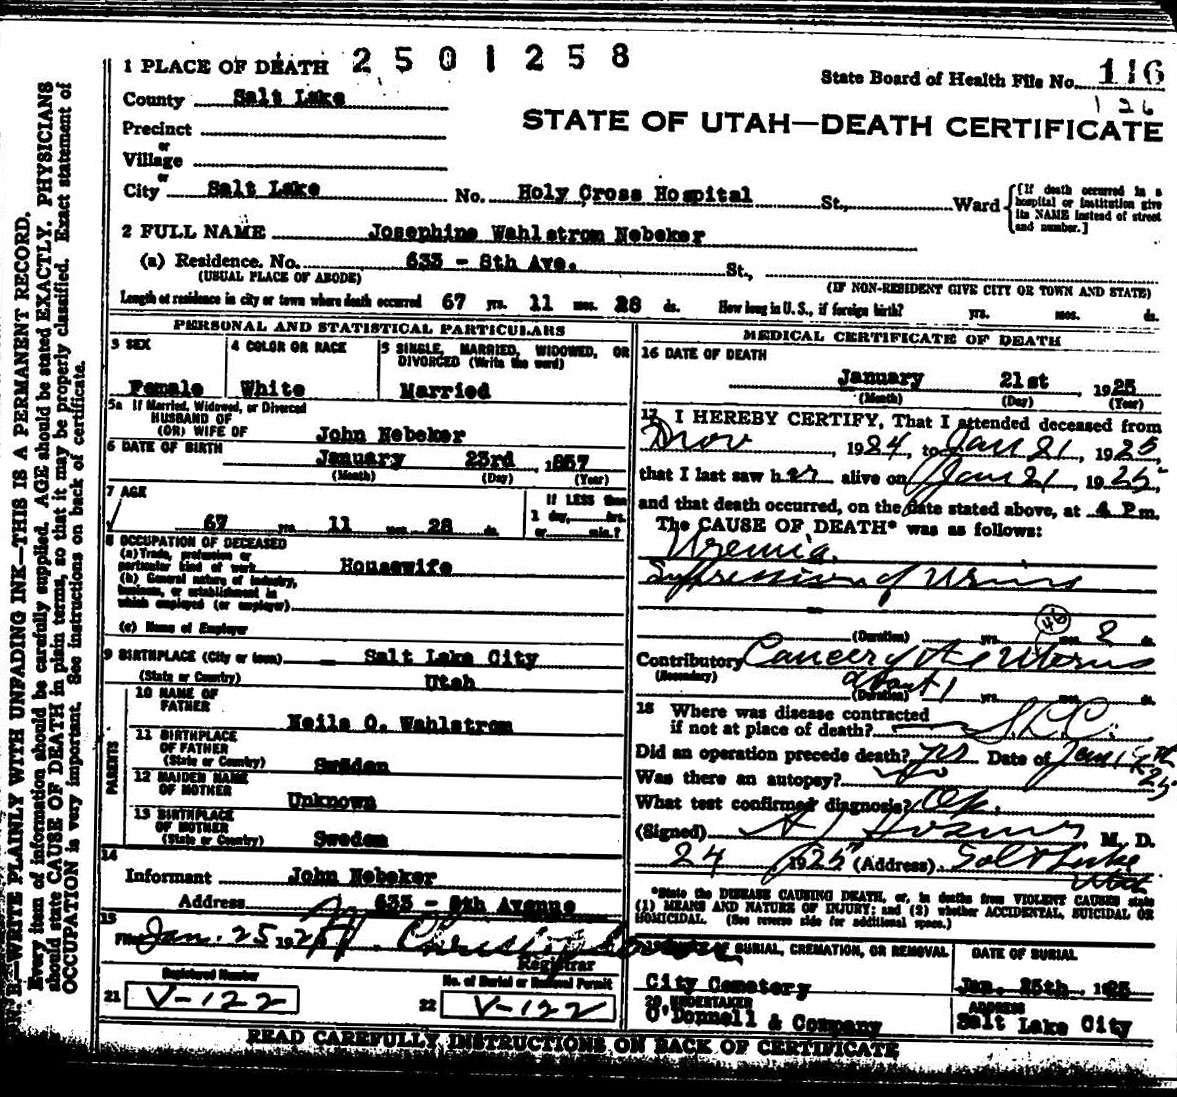 1 PLACE OF DEATH 2 5 0 1 2 5 8
State Board of Health File No. 116
126
County Salt Lake
STATE OF UTAH—DEATH CERTIFICATE
Precinct
or
Village
or
City Salt Lake No. Holy Cross Hospital St., Ward
[If death occurred in a hospital or institution give its NAME instead of street and number.]
2 FULL NAME Josephine Wahlstrom Nebeker
(a) Residence. No. 633 - 8th Ave. St.,
(USUAL PLACE OF ABODE) (IF NON-RESIDENT GIVE CITY OR TOWN AND STATE)
Length of residence in city or town where death occurred 67 yrs. 11 mos. 28 ds. How long in U. S., if foreign birth? yrs. mos. ds.
PERSONAL AND STATISTICAL PARTICULARS
3 SEX
Female
4 COLOR OR RACE
White
5 SINGLE, MARRIED, WIDOWED, OR
DIVORCED (Write the word)
Married
5a If Married, Widowed, or Divorced
HUSBAND OF
(OR) WIFE OF John Nebeker
6 DATE OF BIRTH
January 23rd 1857
(Month) (Day) (Year)
7 AGE
67 yrs. 11 mos. 28 ds.
If LESS than
1 day, hrs.
or min.?
8 OCCUPATION OF DECEASED
(a) Trade, profession or
particular kind of work Housewife
(b) General nature of industry,
business, or establishment in
which employed (or employer)
(c) Name of Employer
9 BIRTHPLACE (City or town) Salt Lake City
(State or Country) Utah
PARENTS
10 NAME OF
FATHER Neils O. Wahlstrom
11 BIRTHPLACE
OF FATHER
(State or Country) Sweden
12 MAIDEN NAME
OF MOTHER Unknown
13 BIRTHPLACE
OF MOTHER
(State or Country) Sweden
14
Informant John Nebeker
Address 633 - 8th Avenue
15
Filed Jan. 25 1925
Registrar
Registered Number
No. of Burial or Removal Permit
21 V-122
22 V-122
MEDICAL CERTIFICATE OF DEATH
16 DATE OF DEATH
January 21st, 1925
(Month) (Day) (Year)
17 I HEREBY CERTIFY, That I attended deceased from
Nov, 1924, to Jan 21, 1925,
that I last saw her alive on Jan 21, 1925,
and that death occurred, on the date stated above, at 4 P m.
The CAUSE OF DEATH* was as follows:
Uremia.
Suppression of Urine
46
(Duration) yrs. mos. 2 ds.
Contributory Cancer of the Uterus
(Secondary)
about 1
(Duration) yrs. mos. ds.
18 Where was disease contracted
if not at place of death? S.L.C.
Did an operation precede death? yes Date of Jan
25
Was there an autopsy? no
What test confirmed diagnosis? Op.
(Signed) M. D.
24 1925 (Address) Salt Lake
Utah
*State the DISEASE CAUSING DEATH, or, in deaths from VIOLENT CAUSES state
(1) MEANS AND NATURE OF INJURY; and (2) whether ACCIDENTAL, SUICIDAL OR
HOMICIDAL. (See reverse side for additional space.)
OF BURIAL, CREMATION, OR REMOVAL
City Cemetery
DATE OF BURIAL
Jan. 25th, 1925
20 UNDERTAKER
O'Donnell & Company
ADDRESS
Salt Lake City
READ CAREFULLY INSTRUCTIONS ON BACK OF CERTIFICATE
N. B.—WRITE PLAINLY WITH UNFADING INK—THIS IS A PERMANENT RECORD.
Every item of information should be carefully supplied. AGE should be stated EXACTLY. PHYSICIANS
should state CAUSE OF DEATH in plain terms, so that it may be properly classified. Exact statement of
OCCUPATION is very important. See instructions on back of certificate.